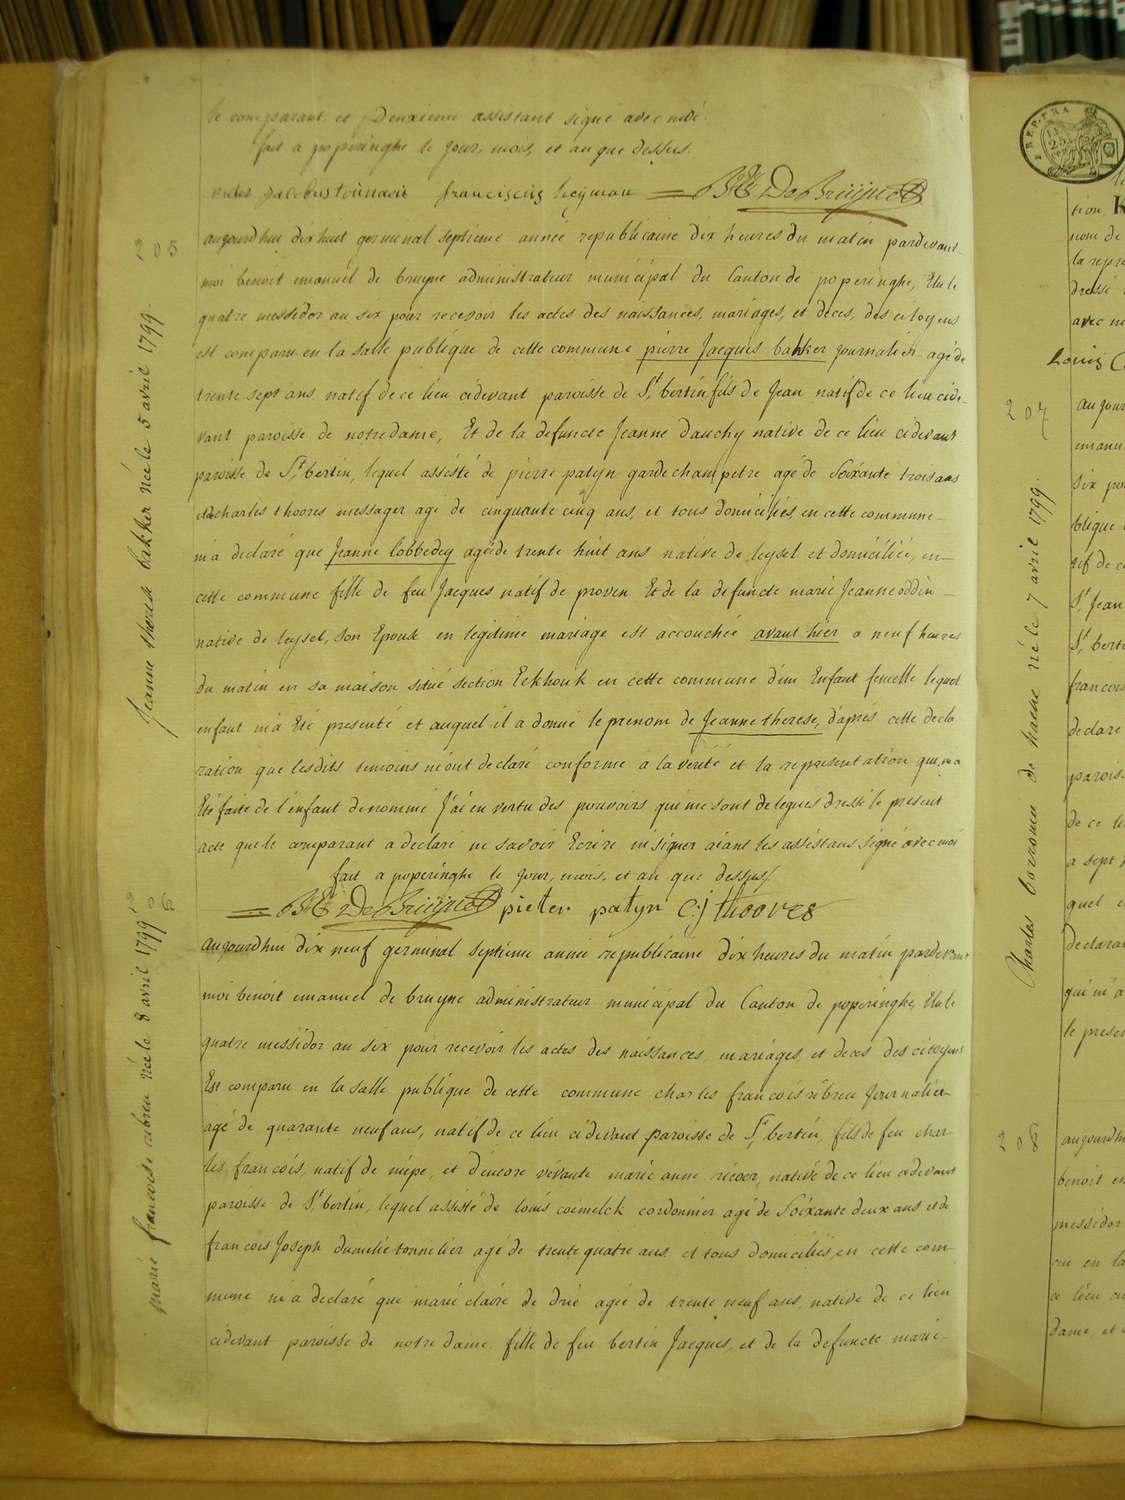 le comparant et deuxieme assistant signé avec moi.
fait a poperinghe le jour, mois, et an que dessus.
franciscus heyman BE DeBruijne
205
aujourdhui dix huit germinal septieme année republicaine dix heures du matin pardevant
moi benoit emanuel de bruyne administrateur municipal du Canton de poperinghe, Elu le
quatre messidor an six pour recevoir les actes des naissances, mariages, et deces, des citoyens
est comparu en la salle publique de cette commune pierre Jacques bakker journalier agé de
trente sept ans natif de ce lieu cidevant paroisse de St bertin fils de Jean natif de ce lieu cide-
vant paroisse de notredame, Et de la defuncte Jeanne dauchy native de ce lieu cidevant
paroisse de St bertin, lequel assisté de pierre patyn gardechampetre agé de Soixante trois ans
et charles thoores messager agé de cinquante cinq ans, et tous domiciliés, en cette commune-
m'a declaré que Jeanne lobbedey ageé de trente huit ans native de leysel et domiciliée, en-
cette commune fille de feu Jacques natif de proven Et de la defuncte marie Jeanne oddin-
native de leysel, son Epouse en legitime mariage est accouchée avant hier a neuf heures
du matin en sa maison situé section Eekhouk en cette commune d'un Enfant femelle lequel
enfant m'a Eté presenté et auquel il a donné le prenom de Jeanne therese, d'aprés cette decla
ration que lesdits temoins m'ont declaré conforme a la verité et la representation qui m'a
Eté faite de l'enfant denommé J'ai en vertu des pouvoirs qui me sont delegués dressé le present
acte que le comparant a declaré ne savoir Ecrire ni signer aiant les assistans signé avec moi
fait a poperinghe le jour, mois, et an que dessus/
BE DeBruijne pieter patyn C:j thoores
Jeanne theresia bakker née le 5 avril 1799.
206
aujourdhui dix neuf germinal septieme année republicaine dix heures du matin pardevant
moi benoit emanuel de bruyne administrateur municipal du Canton de poperinghe, Elu le
quatre messidor an six pour recevoir les actes des naissances, mariages, et deces des citoyens
Est comparu en la salle publique de cette commune charles francois rebreu Journalier
agé de quarante neuf ans, natif de ce lieu cidevant paroisse de St bertin, fils de feu char-
les, francois, natif de niepe, et d'encore vivante marie anne native de ce lieu cidevant
paroisse de St bertin, lequel assisté de louis coemelck cordonnier agé de Soixante deux ans et de
francois Joseph tonnelier agé de trente quatre ans et tous domiciliés, en cette com-
mune m'a declaré que marie claire de drie ageé de trente neuf ans, native de ce lieu
cidevant paroisse de notre dame, fille de feu bertin Jacques, et de la defuncte marie-
marie francoise rebreu née le 8 avril 1799
tion K
nom de
la repre
dressé
avec m
Louis C
207
aujour
emanu
six po
blique
tif de c
St Jean
St berti
francois
declare
parois
de ce li
a sept
quel e
declara
qui m'a
le prese
Charles borromeu de haene né le 7 avril 1799.
aujourdh
benoit em
messidor
cu en la
ce lieu ci
dame, et